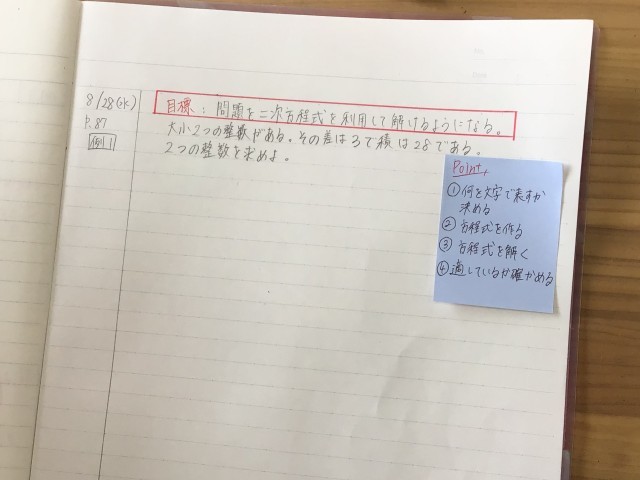 8/28(水)
P.87
例1
目標：問題を二次方程式を利用して解けるようになる。
大小2つの整数がある。その差は3で積は28である。
2つの整数を求めよ。
Point
①何を文字で表すか
決める
②方程式を作る
③方程式を解く
④適しているか確かめる